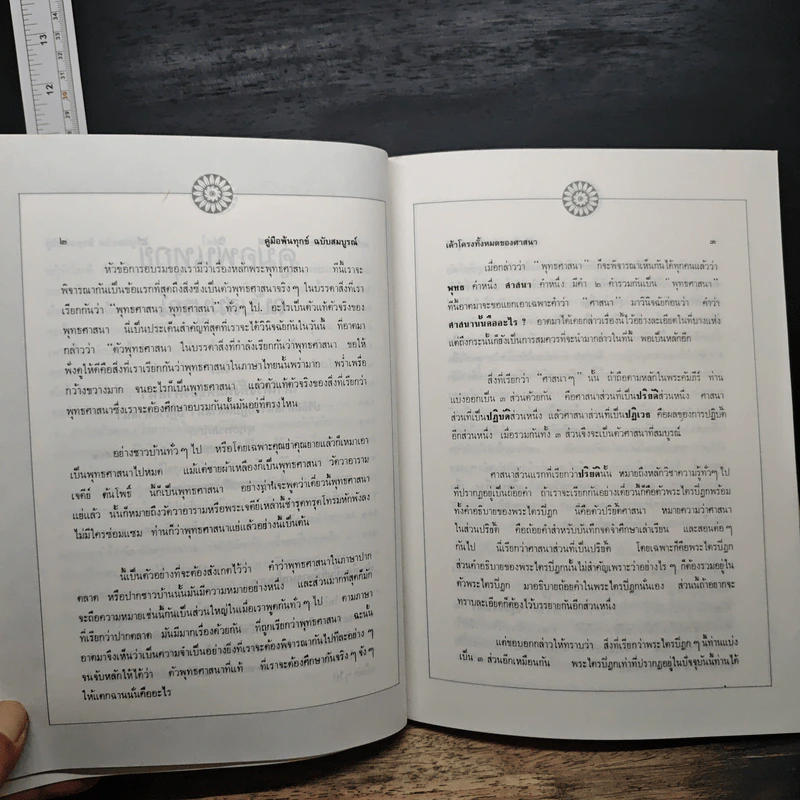 ๒ คู่มือพ้นทุกข์ ฉบับสมบูรณ์
หัวข้อการอบรมของเรามีว่าเรื่องหลักพระพุทธศาสนา ทีนี้เราจะ
พิจารณากันเป็นข้อแรกที่สุดถึงสิ่งซึ่งเป็นตัวพุทธศาสนาจริงๆ ในบรรดาสิ่งที่เรา
เรียกกันว่า "พุทธศาสนา พุทธศาสนา" ทั่วๆ ไป. อะไรเป็นตัวแท้ตัวจริงของ
พุทธศาสนา นี่เป็นประเด็นสำคัญที่สุดที่เราจะได้วินิจฉัยกันในวันนี้ ที่อาตมา
กล่าวว่า "ตัวพุทธศาสนา ในบรรดาสิ่งที่กำลังเรียกกันว่าพุทธศาสนา ขอให้
ฟังดูให้ดีคือสิ่งที่เราเรียกกันว่าพุทธศาสนาในภาษาไทยนั้นพร่ามาก พร่ำเพรื่อ
กว้างขวางมาก จนอะไรก็เป็นพุทธศาสนา แล้วตัวแท้ตัวจริงของสิ่งที่เรียกว่า
พุทธศาสนาซึ่งเราจะต้องศึกษาอบรมกันนั้นมันอยู่ที่ตรงไหน
อย่างชาวบ้านทั่วๆ ไป หรือโดยเฉพาะคุณย่าคุณยายแล้วก็เหมาเอา
เป็นพุทธศาสนาไปหมด แม้แต่ชายผ้าเหลืองก็เป็นพุทธศาสนา วัดวาอาราม
เจดีย์ ต้นโพธิ์ นี้ก็เป็นพุทธศาสนา อย่างที่จะพูดว่าเดี๋ยวนี้พุทธศาสนา
แย่แล้ว นั้นก็หมายถึงวัดวาอารามหรือพระเจดีย์เหล่านี้ชำรุดทรุดโทรมหักพังลง
ไม่มีใครซ่อมแซม ท่านก็ว่าพุทธศาสนาแย่แล้วอย่างนี้เป็นต้น
นี้เป็นตัวอย่างที่จะต้องสังเกตไว้ว่า คำว่าพุทธศาสนาในภาษาปาก
ตลาด หรือปากชาวบ้านนั้นมันมีความหมายอย่างหนึ่ง และส่วนมากที่สุดก็มัก
จะถือความหมายเช่นนี้กันเป็นส่วนใหญ่ในเมื่อเราพูดกันทั่วๆ ไป ตามภาษา
ที่เรียกว่าปากตลาด มันมีมากเรื่องด้วยกัน ที่ถูกเรียกว่าพุทธศาสนา ฉะนั้น
อาตมาจึงเห็นว่าเป็นความจำเป็นอย่างยิ่งที่เราจะต้องพิจารณากันไปทีละอย่างๆ
จนจับหลักให้ได้ว่า ตัวพุทธศาสนาที่แท้ ที่เราจะต้องศึกษากันจริงๆ จังๆ
ให้แตกฉานนั่นคืออะไร
เค้าโครงทั้งหมดของศาสนา ๓
เมื่อกล่าวว่า "พุทธศาสนา" ก็จะพิจารณาเห็นกันได้ทุกคนแล้วว่า
พุทธ คำหนึ่ง ศาสนา คำหนึ่ง มีคำ ๒ คำรวมกันเป็น "พุทธศาสนา"
ทีนี้อาตมาจะขอแยกเอาเฉพาะคำว่า "ศาสนา" มาวินิจฉัยก่อนว่า คำว่า
ศาสนานั้นคืออะไร ? อาตมาได้เคยกล่าวเรื่องนี้ไว้อย่างละเอียดในที่บางแห่ง
แต่ถึงกระนั้นก็ยังเป็นการสมควรที่จะนำมากล่าวในที่นี้ พอเป็นหลักอีก
สิ่งที่เรียกว่า "ศาสนาๆ" นั้น ถ้าถือตามหลักในพระคัมภีร์ ท่าน
แบ่งออกเป็น ๓ ส่วนด้วยกัน คือศาสนาส่วนที่เป็นปริยัติส่วนหนึ่ง ศาสนา
ส่วนที่เป็นปฏิบัติส่วนหนึ่ง แล้วศาสนาส่วนที่เป็นปฏิเวธ คือผลของการปฏิบัติ
อีกส่วนหนึ่ง เมื่อรวมกันทั้ง ๓ ส่วนจึงจะเป็นตัวศาสนาที่สมบูรณ์
ศาสนาส่วนแรกที่เรียกว่าปริยัตินั้น หมายถึงหลักวิชาความรู้ทั่วๆ ไป
ที่ปรากฏอยู่เป็นถ้อยคำ ถ้าเราจะเรียกกันอย่างเดี๋ยวนี้ก็คือตัวพระไตรปิฎกพร้อม
ทั้งคำอธิบายของพระไตรปิฎก นี่คือตัวปริยัติศาสนา หมายความว่าศาสนา
ในส่วนปริยัติ คือถ้อยคำสำหรับบันทึกจดจำศึกษาเล่าเรียน และสอนต่อๆ
กันไป นี่เรียกว่าศาสนาส่วนที่เป็นปริยัติ โดยเฉพาะก็คือพระไตรปิฎก
ส่วนคำอธิบายของพระไตรปิฎกนั้นไม่สำคัญเพราะว่าอย่างไรๆ ก็ต้องรวมอยู่ใน
ตัวพระไตรปิฎก มาอธิบายถ้อยคำในพระไตรปิฎกนั่นเอง ส่วนนี้ถ้าอยากจะ
ทราบละเอียดก็ต้องไว้บรรยายกันอีกส่วนหนึ่ง
แต่ขอบอกกล่าวให้ทราบว่า สิ่งที่เรียกว่าพระไตรปิฎกๆ นี้ท่านแบ่ง
เป็น ๓ ส่วนอีกเหมือนกัน พระไตรปิฎกเท่าที่ปรากฏอยู่ในปัจจุบันนี้ท่านได้
13
12